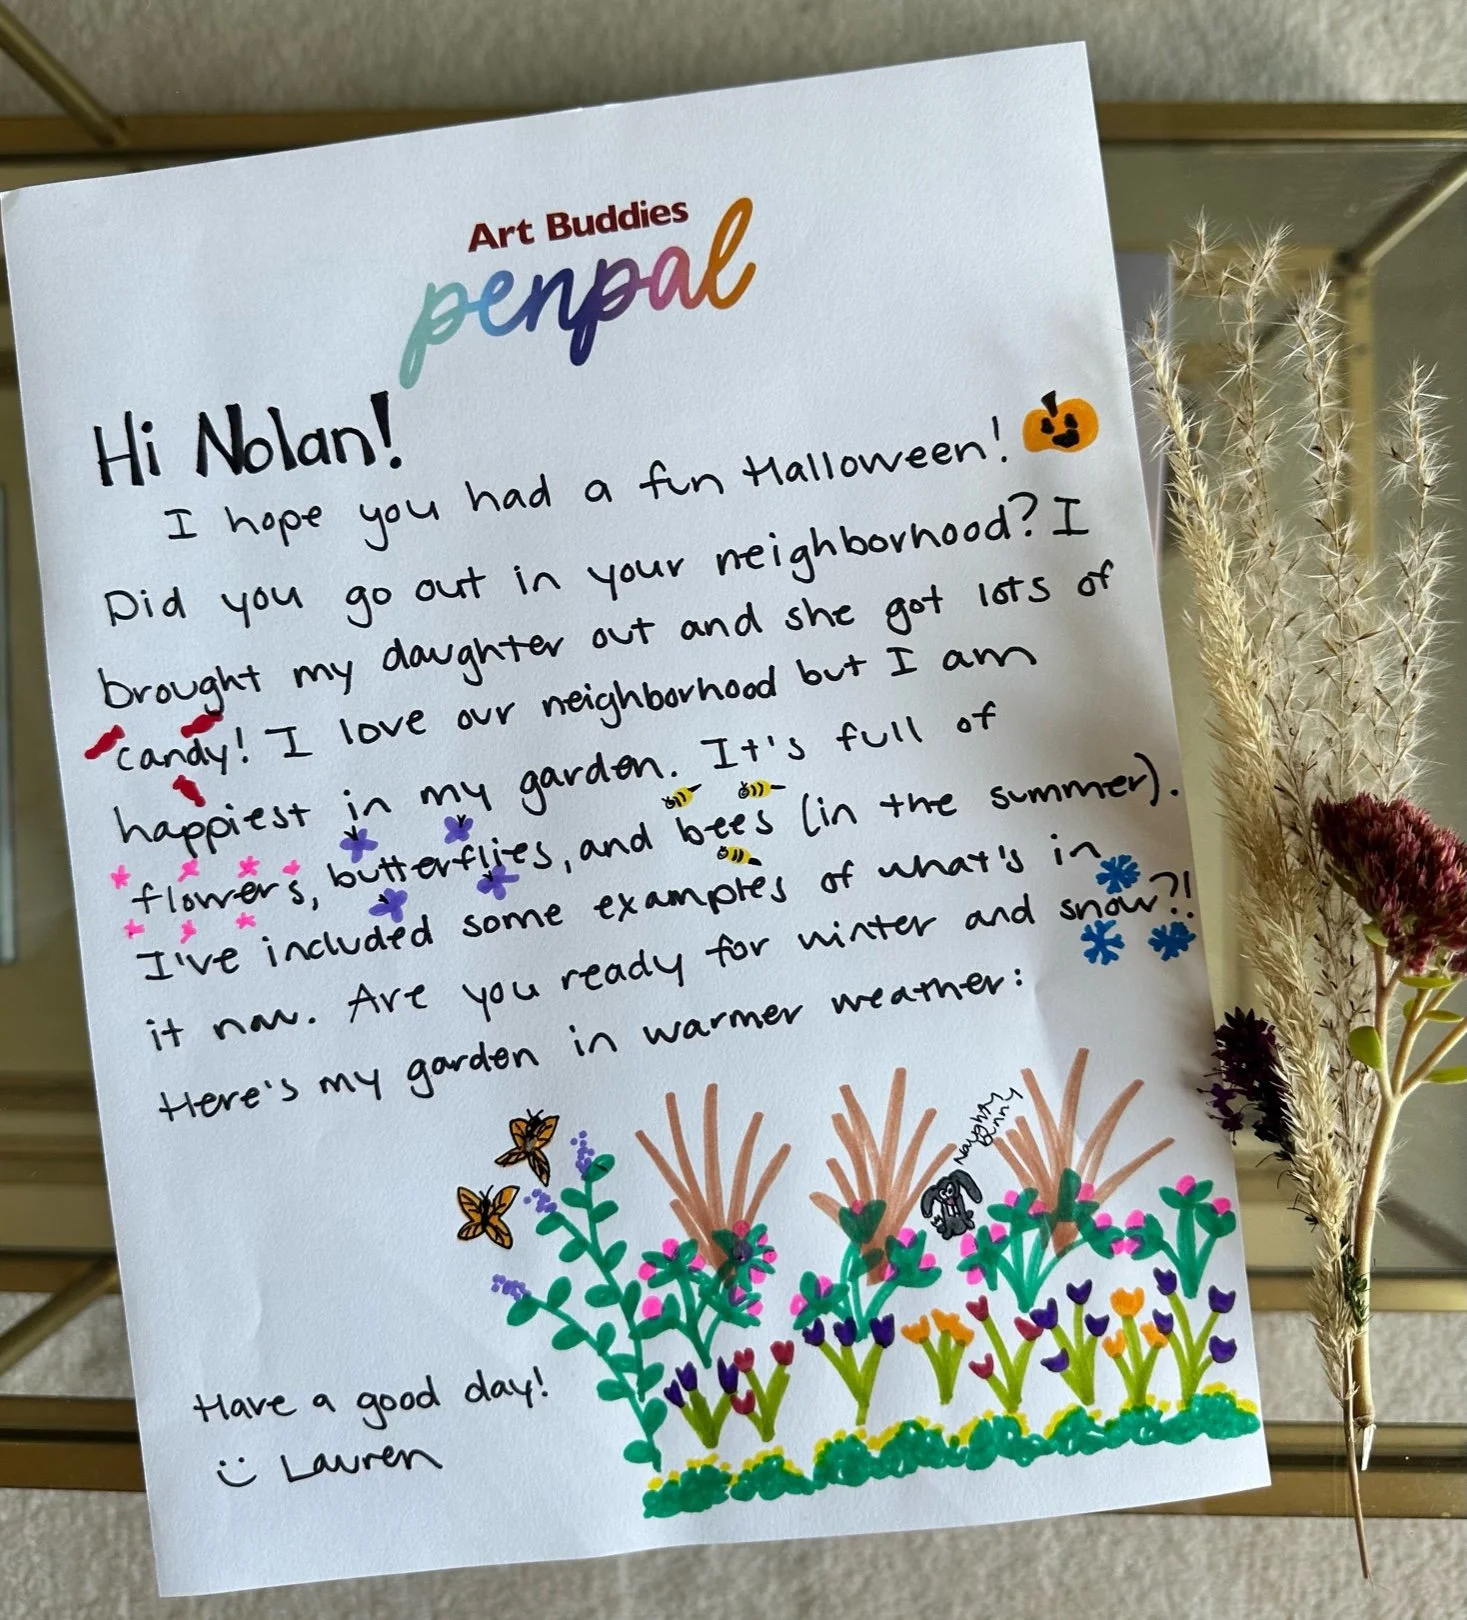 Art Buddies
penpal
Hi Nolan!
I hope you had a fun Halloween!
Did you go out in your neighborhood? I
brought my daughter out and she got lots of
candy! I love our neighborhood but I am
happiest in my garden. It's full of
flowers, butterflies, and bees (in the summer).
I've included some examples of what's in
it now. Are you ready for winter and snow?!
Here's my garden in warmer weather:
Naughty
Bunny
Have a good day!
Lauren